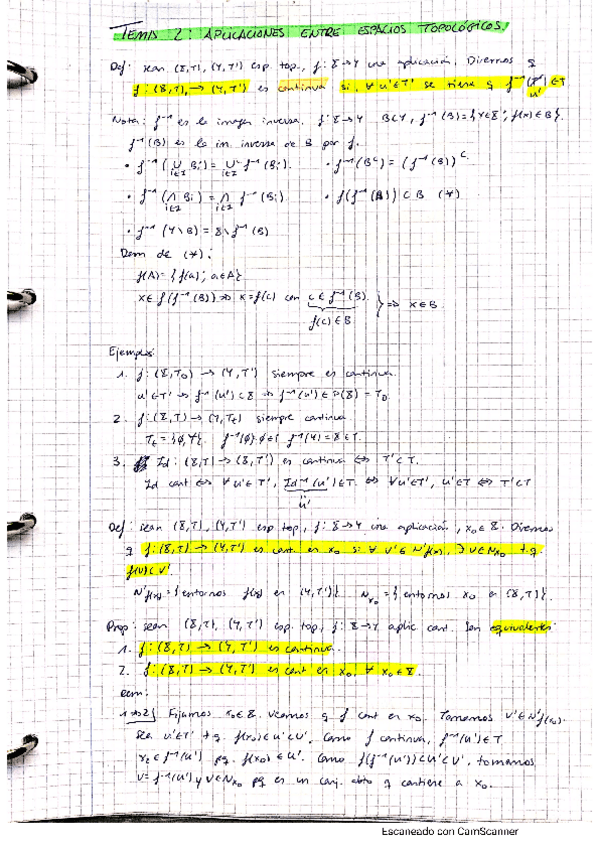 TEMA 2: APLICACIONES ENTRE ESPACIOS TOPOLÓGICOS.
Def: sean (X,T), (Y,T') esp. top., f: X→Y una aplicación. Diremos q
f: (X,T) → (Y,T') es continua si ∀ u'∈T' se tiene q f⁻¹(u') ∈T
Nota: f⁻¹ es la imagen inversa. f: X→Y B⊂Y, f⁻¹(B)={x∈X; f(x)∈B}.
f⁻¹(B) es la im. inversa de B por f.
• f⁻¹(∪ Bi) = ∪ f⁻¹(Bi). • f⁻¹(Bᶜ) = (f⁻¹(B))ᶜ.
i∈I i∈I
• f⁻¹(∩ Bi) = ∩ f⁻¹(Bi) • f(f⁻¹(B)) ⊂ B (*)
i∈I i∈I
• f⁻¹(Y\B) = X\f⁻¹(B)
Dem de (*):
f(A) = {f(a); a∈A}
x∈ f(f⁻¹(B)) ⇒ x=f(c) con c∈f⁻¹(B). } ⇒ x∈B.
f(c)∈B
Ejemplos:
1. f: (X,T_D) → (Y,T') siempre es continua.
u'∈T' → f⁻¹(u')⊂X → f⁻¹(u')∈P(X) = T_D.
2. f: (X,T) → (Y,T_t) siempre continua
T_t = {∅,Y}. f⁻¹(∅)=∅∈T f⁻¹(Y)=X∈T.
3. Id: (X,T) → (X,T') es continua ⇔ T'⊂T.
Id cont ⇔ ∀ u'∈T', Id⁻¹(u')∈T. ⇔ ∀u'∈T', u'∈T ⇔ T'⊂T
u'
Def: sean (X,T), (Y,T') esp top., f: X→Y una aplicación, x₀∈X. Diremos
q f: (X,T) → (Y,T') es cont. en x₀ si ∀ V'∈ N'f(x₀), ∃ V∈N_x₀ t.q.
f(V)⊂V'
N'f(x₀) = {entornos f(x₀) en (Y,T')} N_x₀ = {entornos x₀ en (X,T)}.
Prop: sean (X,T), (Y,T') esp. top., f: X→Y aplic cont. Son equivalentes:
1. f: (X,T) → (Y,T') es continua.
2. f: (X,T) → (Y,T') es cont en x₀, ∀ x₀∈X.
Dem:
1⇒2 Fijamos x₀∈X. Veamos q f cont en x₀. Tomamos V'∈N'f(x₀).
Sea u'∈T' t.q. f(x₀)∈u'⊂V'. Como f continua, f⁻¹(u')∈T.
x₀∈f⁻¹(u') pq. f(x₀)∈u'. Como f(f⁻¹(u'))⊂u'⊂V', tomamos
V= f⁻¹(u') y V∈N_x₀ pq es un conj. abto q contiene a x₀.
Escaneado con CamScanner